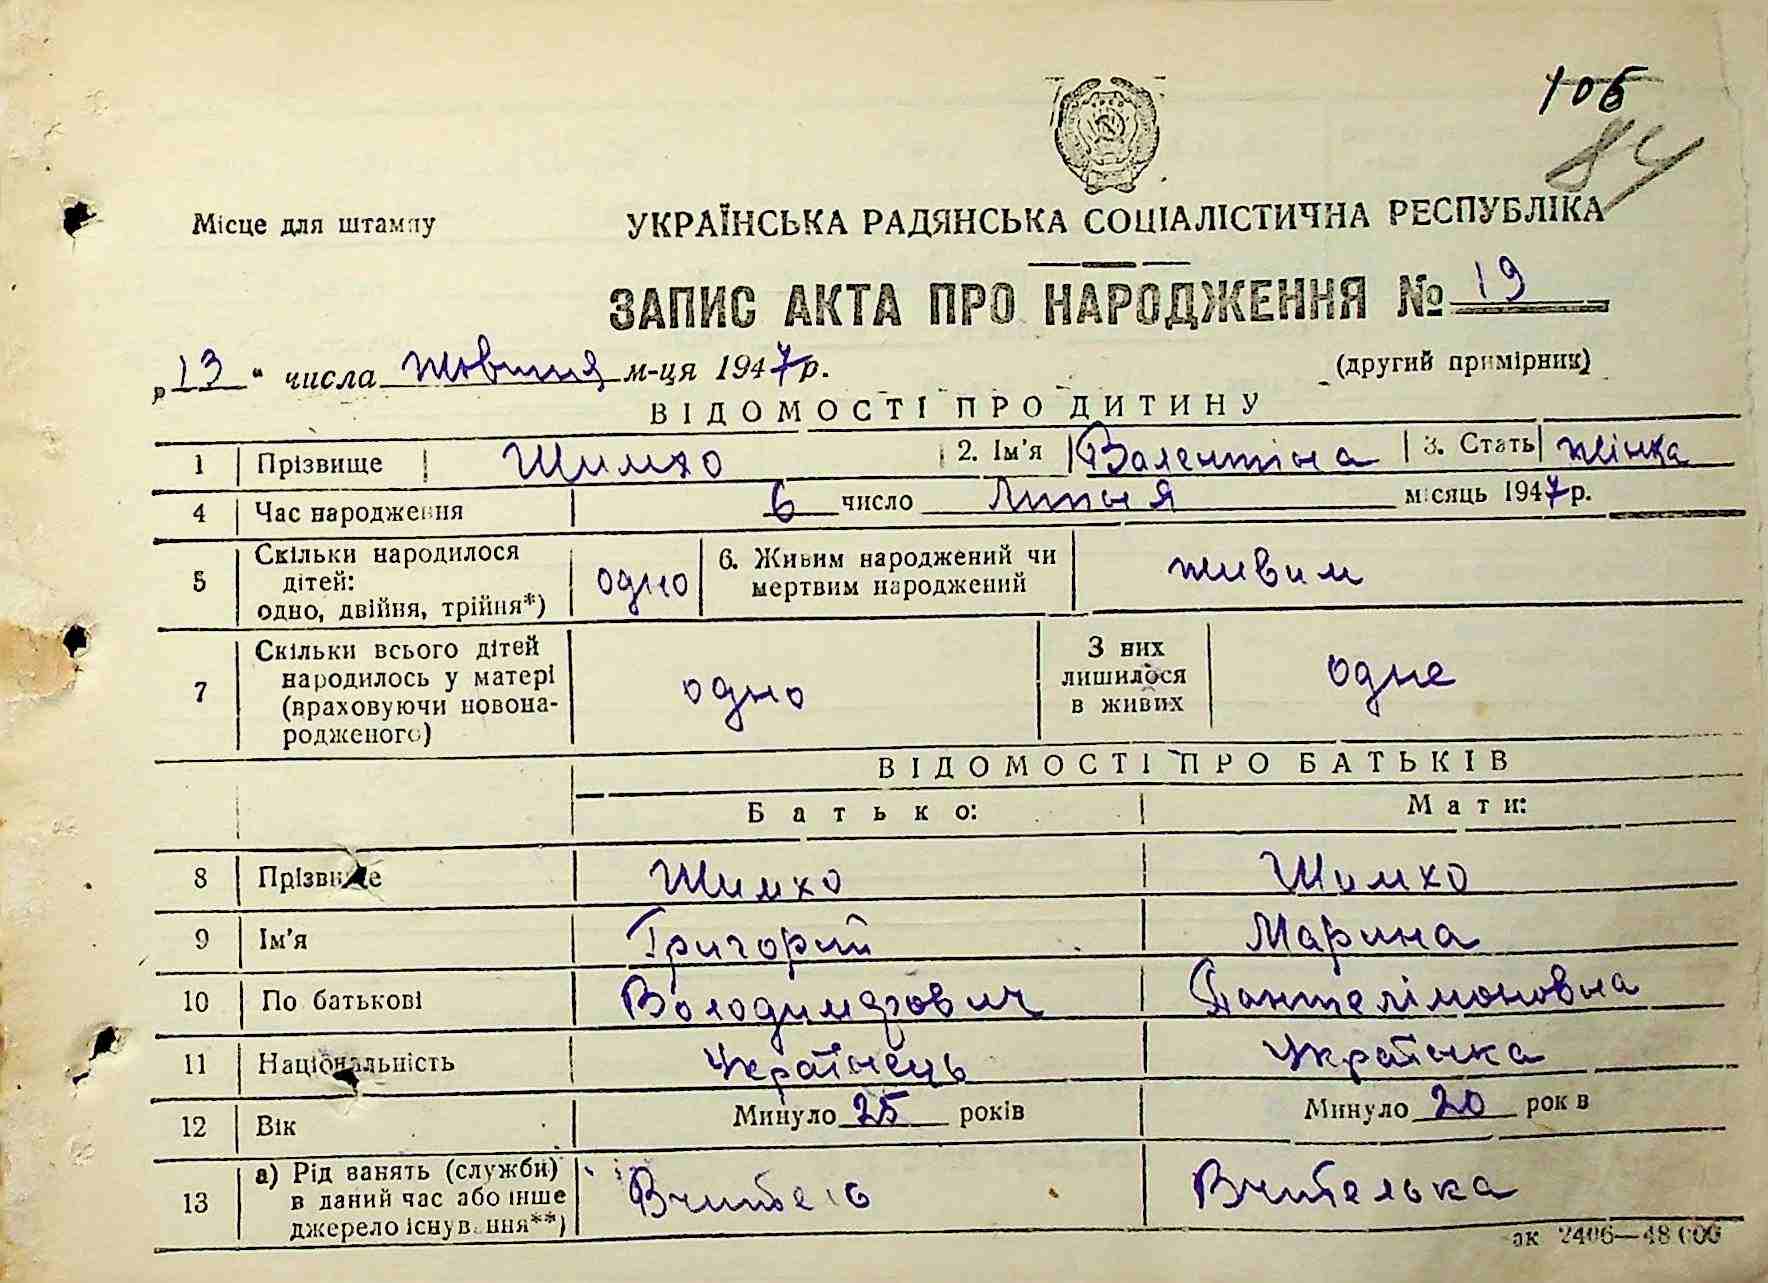 106
84
Місце для штампу
УКРАЇНСЬКА РАДЯНСЬКА СОЦІАЛІСТИЧНА РЕСПУБЛІКА
ЗАПИС АКТА ПРО НАРОДЖЕННЯ № 19
„13“ числа жовтня м-ця 1947 р.
(другий примірник)
ВІДОМОСТІ ПРО ДИТИНУ
1 Прізвище Шимхо 2. Ім'я Валентіна 3. Стать жінка
4 Час народження 6 число Липня місяць 1947 р.
5 Скільки народилося дітей: одно, двійня, трійня*) одно 6. Живим народжений чи мертвим народжений живим
7 Скільки всього дітей народилось у матері (враховуючи новона-родженого) одно З них лишилося в живих одне
ВІДОМОСТІ ПРО БАТЬКІВ
Батько: Мати:
8 Прізвище Шимхо Шимхо
9 Ім'я Григорій Марина
10 По батькові Володимирович Пантелімоновна
11 Національність Українець Українка
12 Вік Минуло 25 років Минуло 20 років
13 а) Рід занять (служби) в даний час або інше джерело існування**) Вчитель Вчителька
зк 2406—48 000